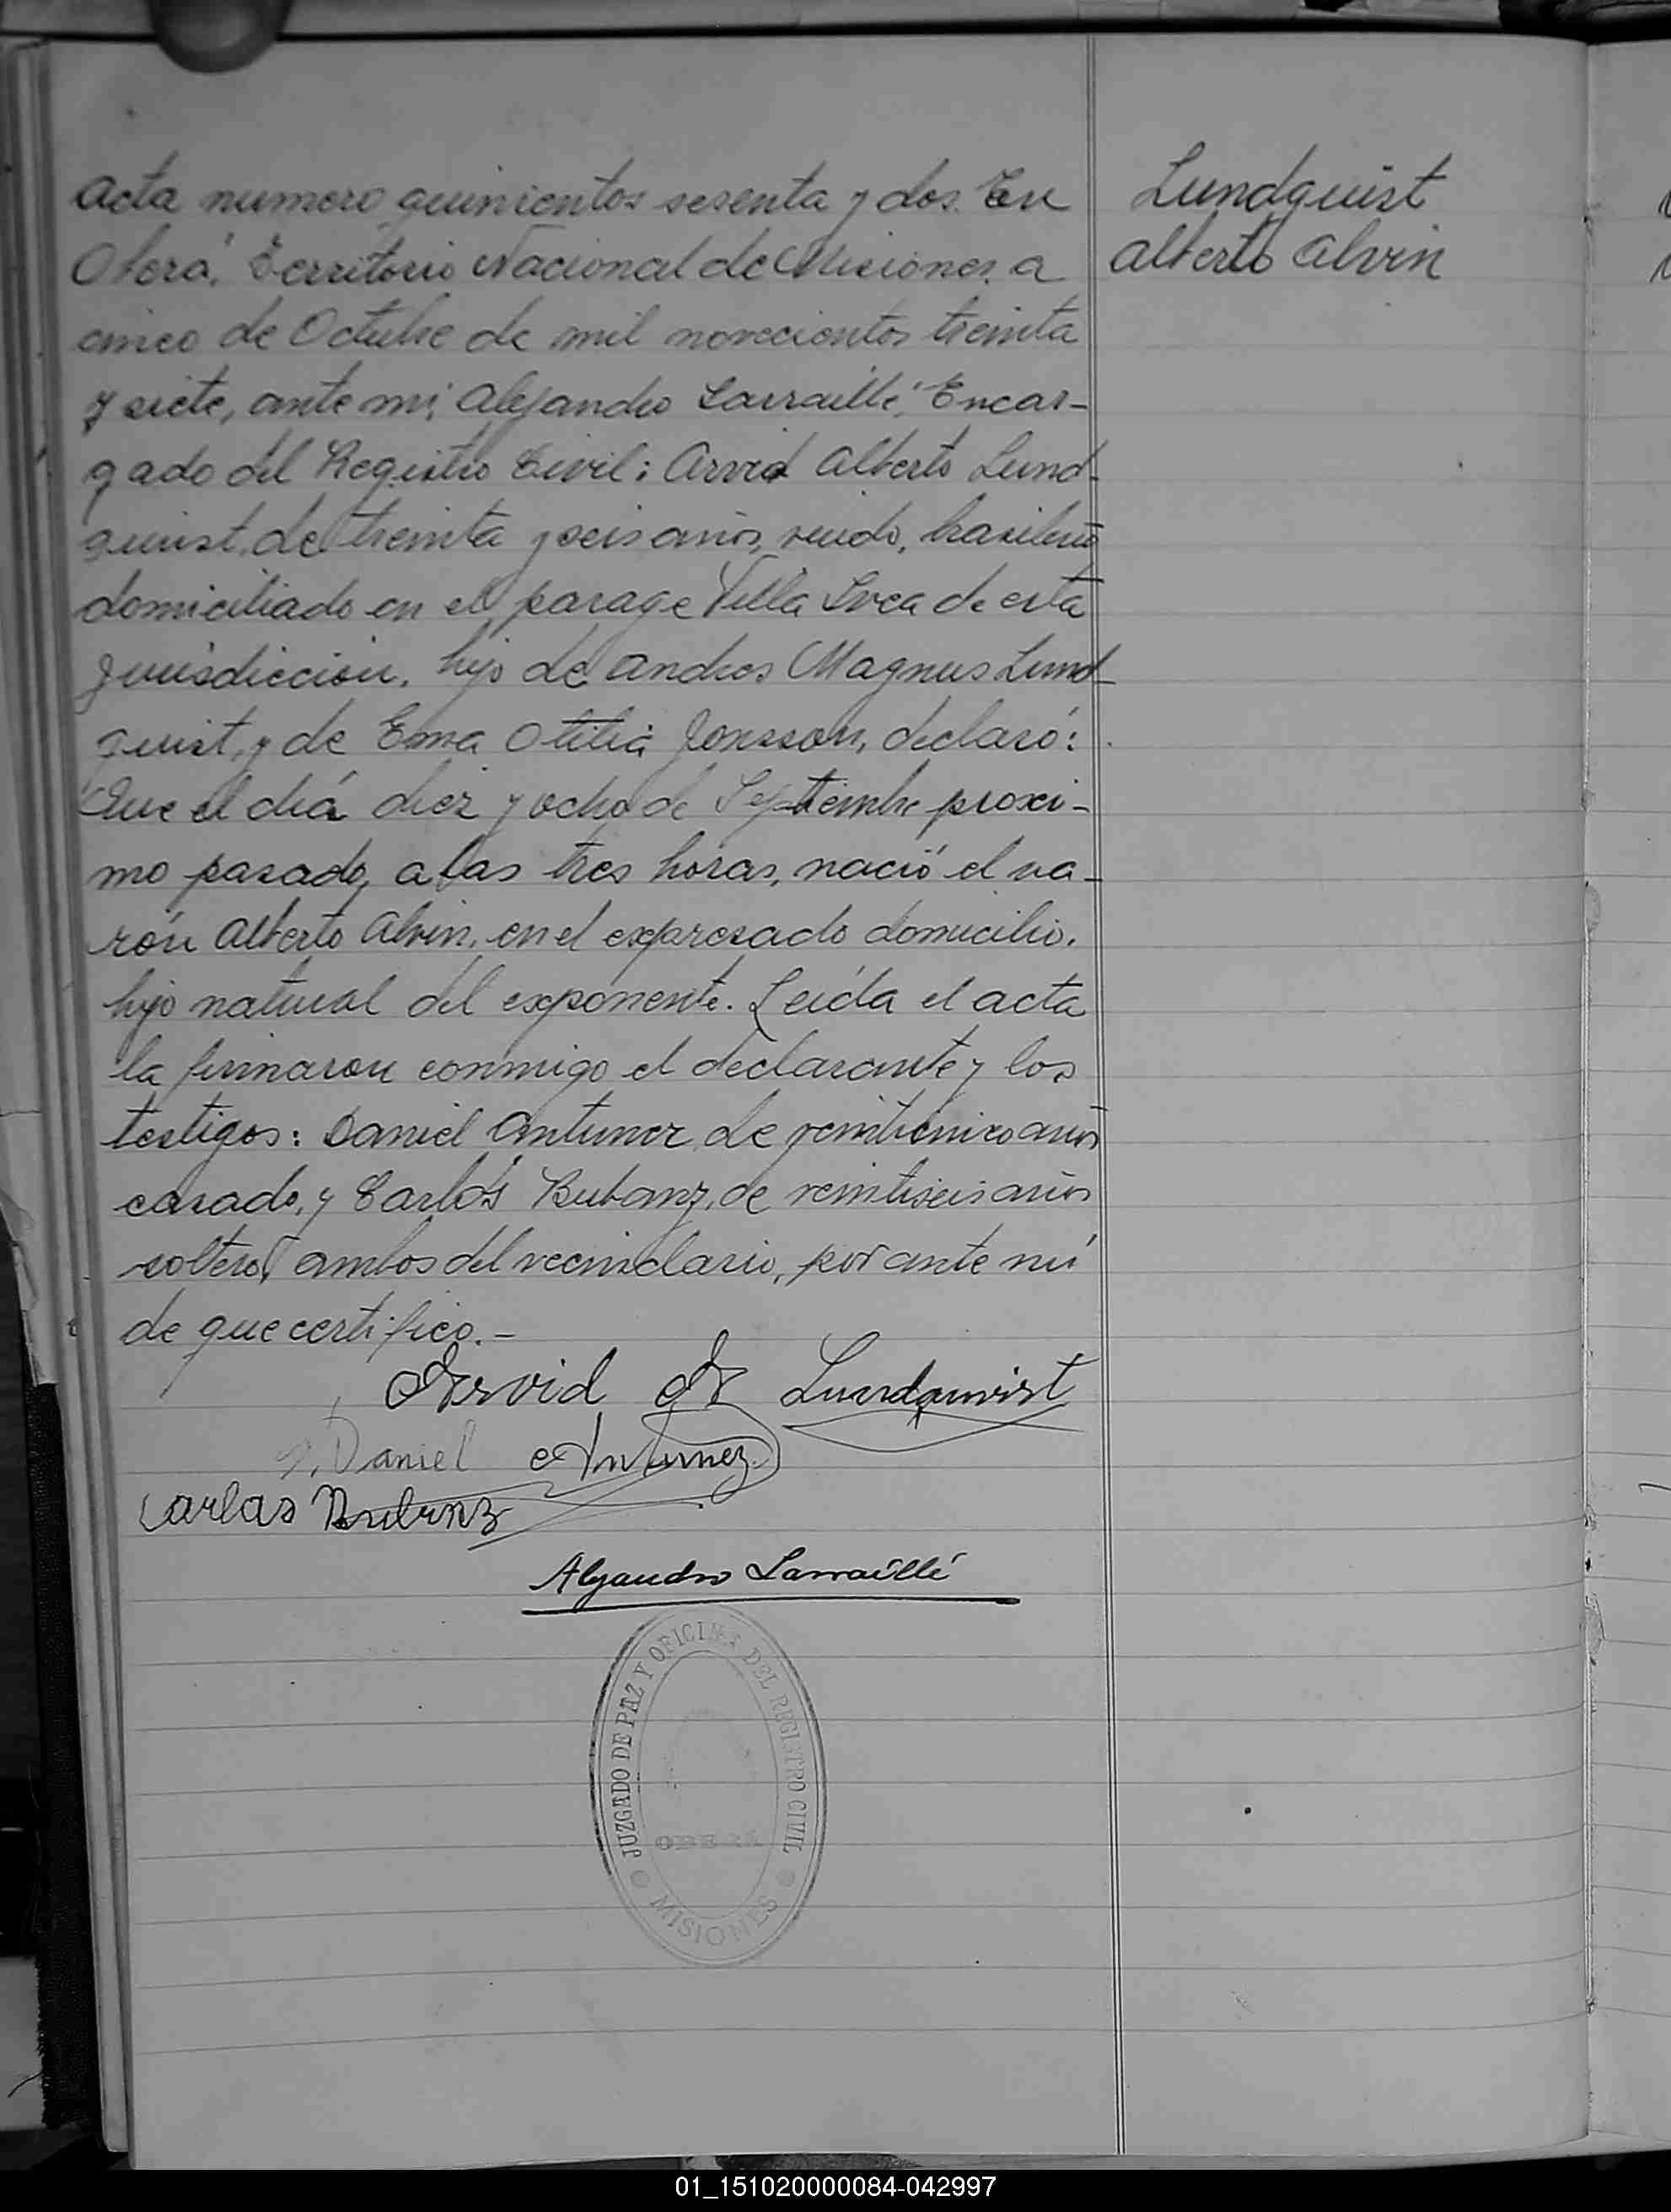 Acta numero quinientos sesenta y dos. En
Oberá, Territorio Nacional de Misiones, a
cinco de Octubre de mil novecientos treinta
y siete, ante mi, Alejandro Larraillé, Encar-
gado del Registro Civil: Arvid Alberto Lund-
quist, de treinta y seis años, viudo, brasileño
domiciliado en el parage Villa Svea de esta
jurisdiccion, hijo de Andres Magnus Lund-
quist, y de Ema Otilia Jonsson, declaró:
Que el diá diez y ocho de Septiembre proxi-
mo pasado, a las tres horas, nació el va-
rón Alberto Alvin, en el expresado domicilio,
hijo natural del exponente. Leída el acta
la firmaron conmigo el declarante y los
testigos: Daniel Antunez, de veinticinco años
casado, y Carlos Bubanz, de veintiseis años
soltero, ambos del vecindario, por ante mi
de que certifico.-
Lundquist
Alberto Alvin
Arvid A Lundquvist
Daniel Antunez
Carlos Bubenz
Alejandro Larraillé
JUZGADO DE PAZ Y OFICINA DEL REGISTRO CIVIL
OBERÁ
MISIONES
01_151020000084-042997